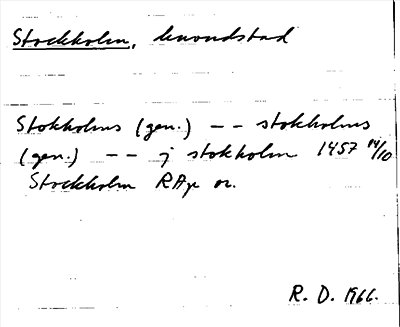 Stockholm, huvudstad
Stokholms (gen.) -- stokholms
(gen.) -- j stokholm 1457 14/10
Stockholm RAp or.
R. D. 1966.